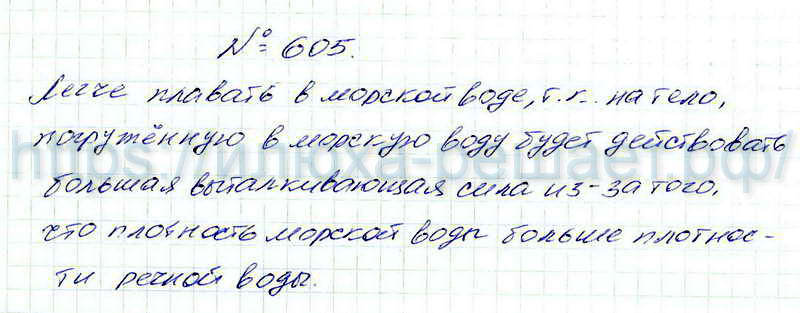 № 605.
Легче плавать в морской воде, т.к. на тело,
погружённую в морскую воду будет действовать
https://илюха-решает.рф/
большая выталкивающая сила из-за того,
что плотность морской воды больше плотнос-
ти речной воды.